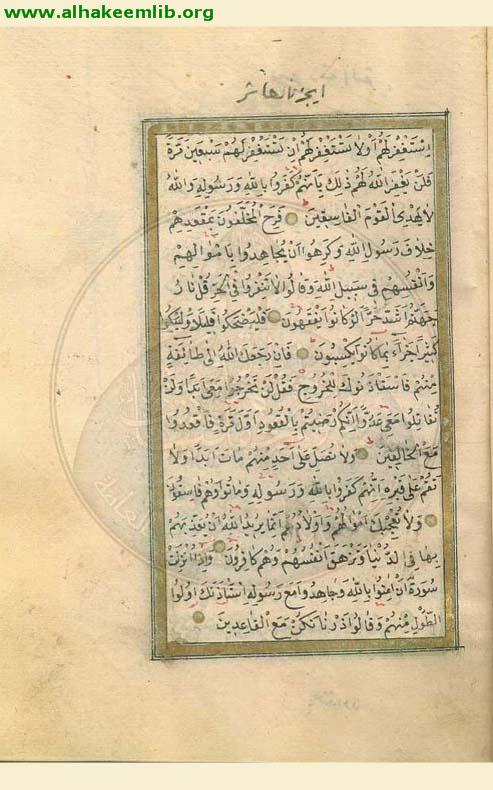 www.alhakeemlib.org
الجزء العاشر
اِسْتَغْفِرْ لَهُمْ اَوْ لَا تَسْتَغْفِرْ لَهُمْ اِنْ تَسْتَغْفِرْ لَهُمْ سَبْعِينَ مَرَّةً
فَلَنْ يَغْفِرَ اللّٰهُ لَهُمْ ذٰلِكَ بِاَنَّهُمْ كَفَرُوا بِاللّٰهِ وَرَسُولِهِ وَاللّٰهُ
لَا يَهْدِى الْقَوْمَ الْفَاسِقِينَ فَرِحَ الْمُخَلَّفُونَ بِمَقْعَدِهِمْ
خِلَافَ رَسُولِ اللّٰهِ وَكَرِهُوا اَنْ يُجَاهِدُوا بِاَمْوَالِهِمْ
وَاَنْفُسِهِمْ فِى سَبِيلِ اللّٰهِ وَقَالُوا لَا تَنْفِرُوا فِى الْحَرِّ قُلْ نَارُ
جَهَنَّمَ اَشَدُّ حَرًّا لَوْ كَانُوا يَفْقَهُونَ فَلْيَضْحَكُوا قَلِيلًا وَلْيَبْكُوا
كَثِيرًا جَزَآءً بِمَا كَانُوا يَكْسِبُونَ فَاِنْ رَجَعَكَ اللّٰهُ اِلٰى طَائِفَةٍ
مِنْهُمْ فَاسْتَاْذَنُوكَ لِلْخُرُوجِ فَقُلْ لَنْ تَخْرُجُوا مَعِىَ اَبَدًا وَلَنْ
تُقَاتِلُوا مَعِىَ عَدُوًّا اِنَّكُمْ رَضِيتُمْ بِالْقُعُودِ اَوَّلَ مَرَّةٍ فَاقْعُدُوا
مَعَ الْخَالِفِينَ وَلَا تُصَلِّ عَلٰى اَحَدٍ مِنْهُمْ مَاتَ اَبَدًا وَلَا
تَقُمْ عَلٰى قَبْرِهِ اِنَّهُمْ كَفَرُوا بِاللّٰهِ وَرَسُولِهِ وَمَاتُوا وَهُمْ فَاسِقُونَ
وَلَا تُعْجِبْكَ اَمْوَالُهُمْ وَاَوْلَادُهُمْ اِنَّمَا يُرِيدُ اللّٰهُ اَنْ يُعَذِّبَهُمْ
بِهَا فِى الدُّنْيَا وَتَزْهَقَ اَنْفُسُهُمْ وَهُمْ كَافِرُونَ وَاِذَا اُنْزِلَتْ
سُورَةٌ اَنْ اٰمِنُوا بِاللّٰهِ وَجَاهِدُوا مَعَ رَسُولِهِ اسْتَاْذَنَكَ اُولُوا
الطَّوْلِ مِنْهُمْ وَقَالُوا ذَرْنَا نَكُنْ مَعَ الْقَاعِدِينَ